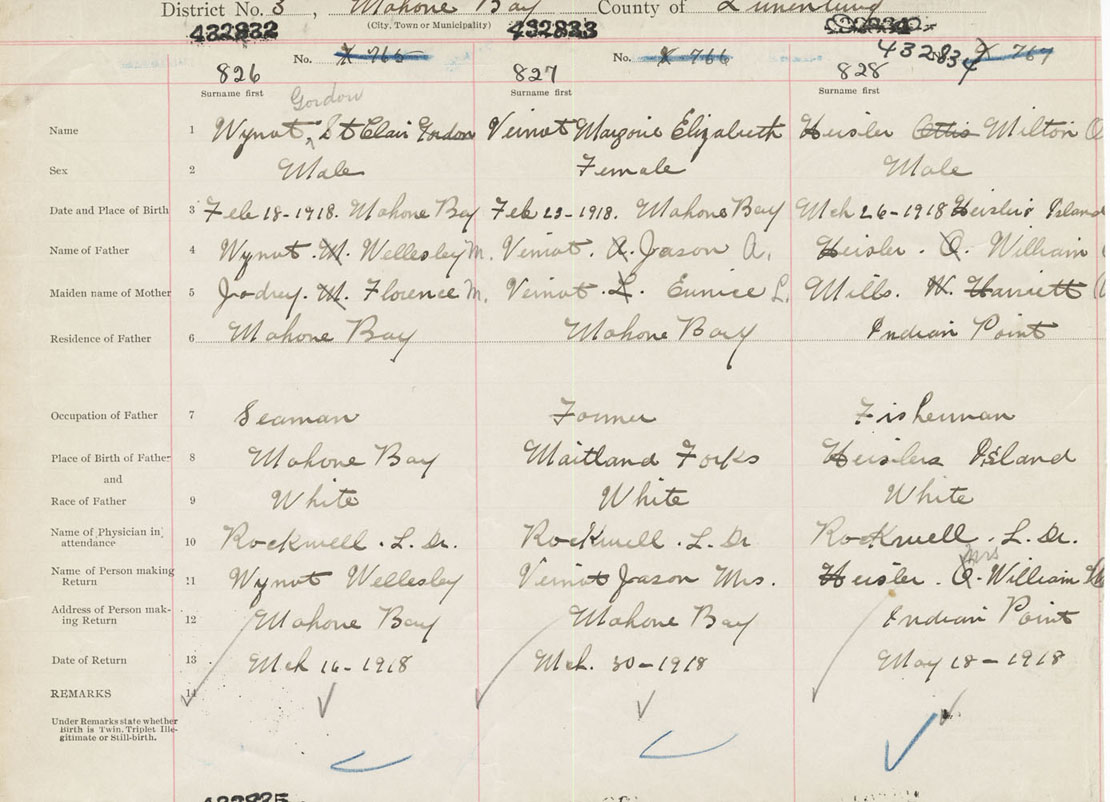 District No. 3, Mahone Bay County of Lunenburg
(City, Town or Municipality)
432832 432833 432834
No. X 765 No. X 766 X 767
826 827 828
Surname first Surname first Surname first
Gordon
Name 1 Wynot, St Clair Gordon Veinot Marjorie Elizabeth Heisler Ottis Milton O
Sex 2 Male Female Male
Date and Place of Birth 3 Feb 18-1918. Mahone Bay Feb 23-1918. Mahone Bay Mch 26-1918 Heisler's Island
Name of Father 4 Wynot. M. Wellesley M. Veinot. A. Jason A. Heisler. O. William
Maiden name of Mother 5 Jodrey. M. Florence M. Veinot. L. Eunice L. Mills. Harriett
Residence of Father 6 Mahone Bay Mahone Bay Indian Point
Occupation of Father 7 Seaman Farmer Fisherman
Place of Birth of Father 8 Mahone Bay Maitland Forks Heislers Island
and
Race of Father 9 White White White
Name of Physician in attendance 10 Rockwell. L. Dr. Rockwell. L. Dr Rockwell. L. Dr.
Mrs
Name of Person making Return 11 Wynot Wellesley Veinot Jason Mrs. Heisler. O. William
Address of Person mak-
ing Return 12 Mahone Bay Mahone Bay Indian Point
Date of Return 13 Mch 16-1918 Mch. 30-1918 May 18-1918
REMARKS 14
Under Remarks state whether
Birth is Twin, Triplet Ille-
gitimate or Still-birth.
432835